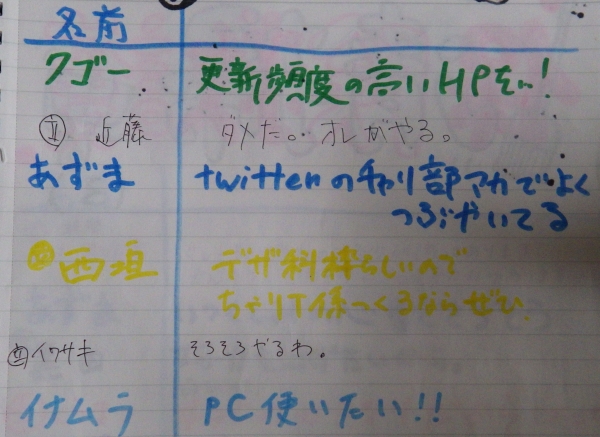 名前
クゴー 更新頻度の高いHPを…!
近藤 ダメだ。オレがやる。
あずま twitterのチャリ部アカでよく
つぶやいてる
西垣 デザ科枠らしいので
ちゃりT係つくるならぜひ
イワサキ そろそろやるわ。
イナムラ PC使いたい!!